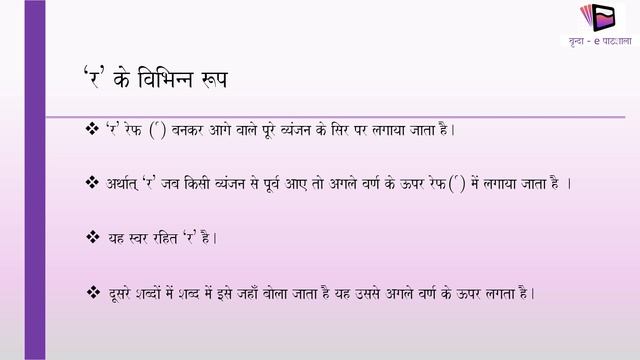 वृन्दा - e पाठशाला
‘र’ के विभिन्न रूप
❖ ‘र’ रेफ (र्) बनकर आगे वाले पूरे व्यंजन के सिर पर लगाया जाता है।
❖ अर्थात् ‘र’ जब किसी व्यंजन से पूर्व आए तो अगले वर्ण के ऊपर रेफ(र्) में लगाया जाता है ।
❖ यह स्वर रहित ‘र’ है।
❖ दूसरे शब्दों में शब्द में इसे जहाँ बोला जाता है यह उससे अगले वर्ण के ऊपर लगता है।